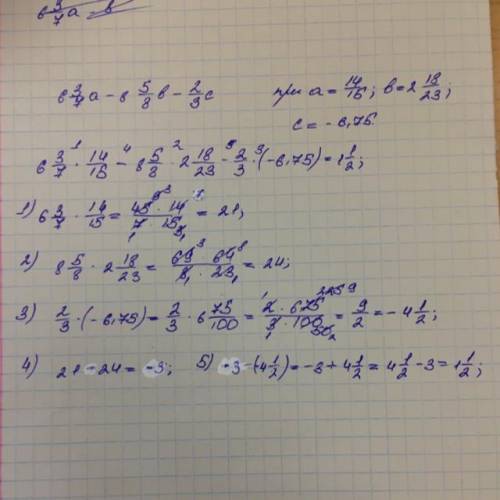 6 3/7 a - 8 5/8 b - 2/3 c при a = 14/15; b = 2 18/23;
c = - 6,75.
6 3/7 · 14/15 - 8 5/8 · 2 18/23 - 2/3 · (-6,75) = 1 1/2;
1) 6 3/7 · 14/15 = 45 · 14 / 7 · 15 = 21;
2) 8 5/8 · 2 18/23 = 69 · 64 / 8 · 23 = 24;
3) 2/3 · (-6,75) = 2/3 · 6 75/100 = 2 · 675 / 3 · 100 = 9/2 = - 4 1/2;
4) 21 - 24 = -3; 5) -3 - (4 1/2) = -3 + 4 1/2 = 4 1/2 - 3 = 1 1/2;